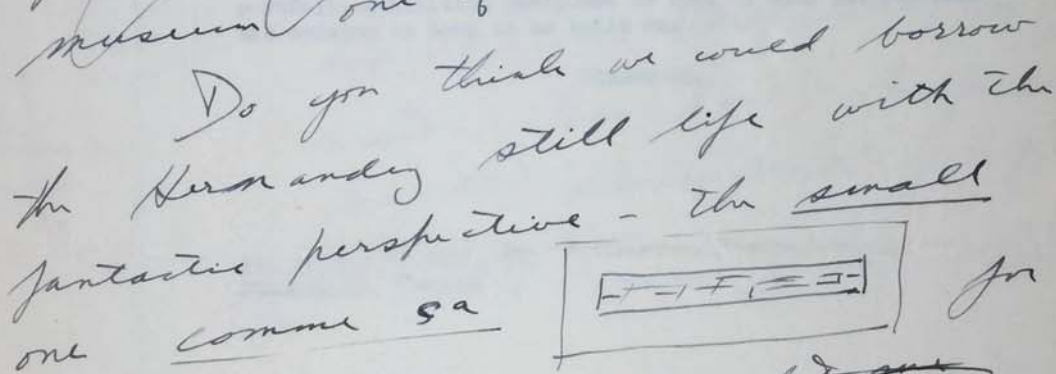 museum one
Do you think we could borrow
the Hernandez still life with the
fantastic perspective - the small
one comme sa for